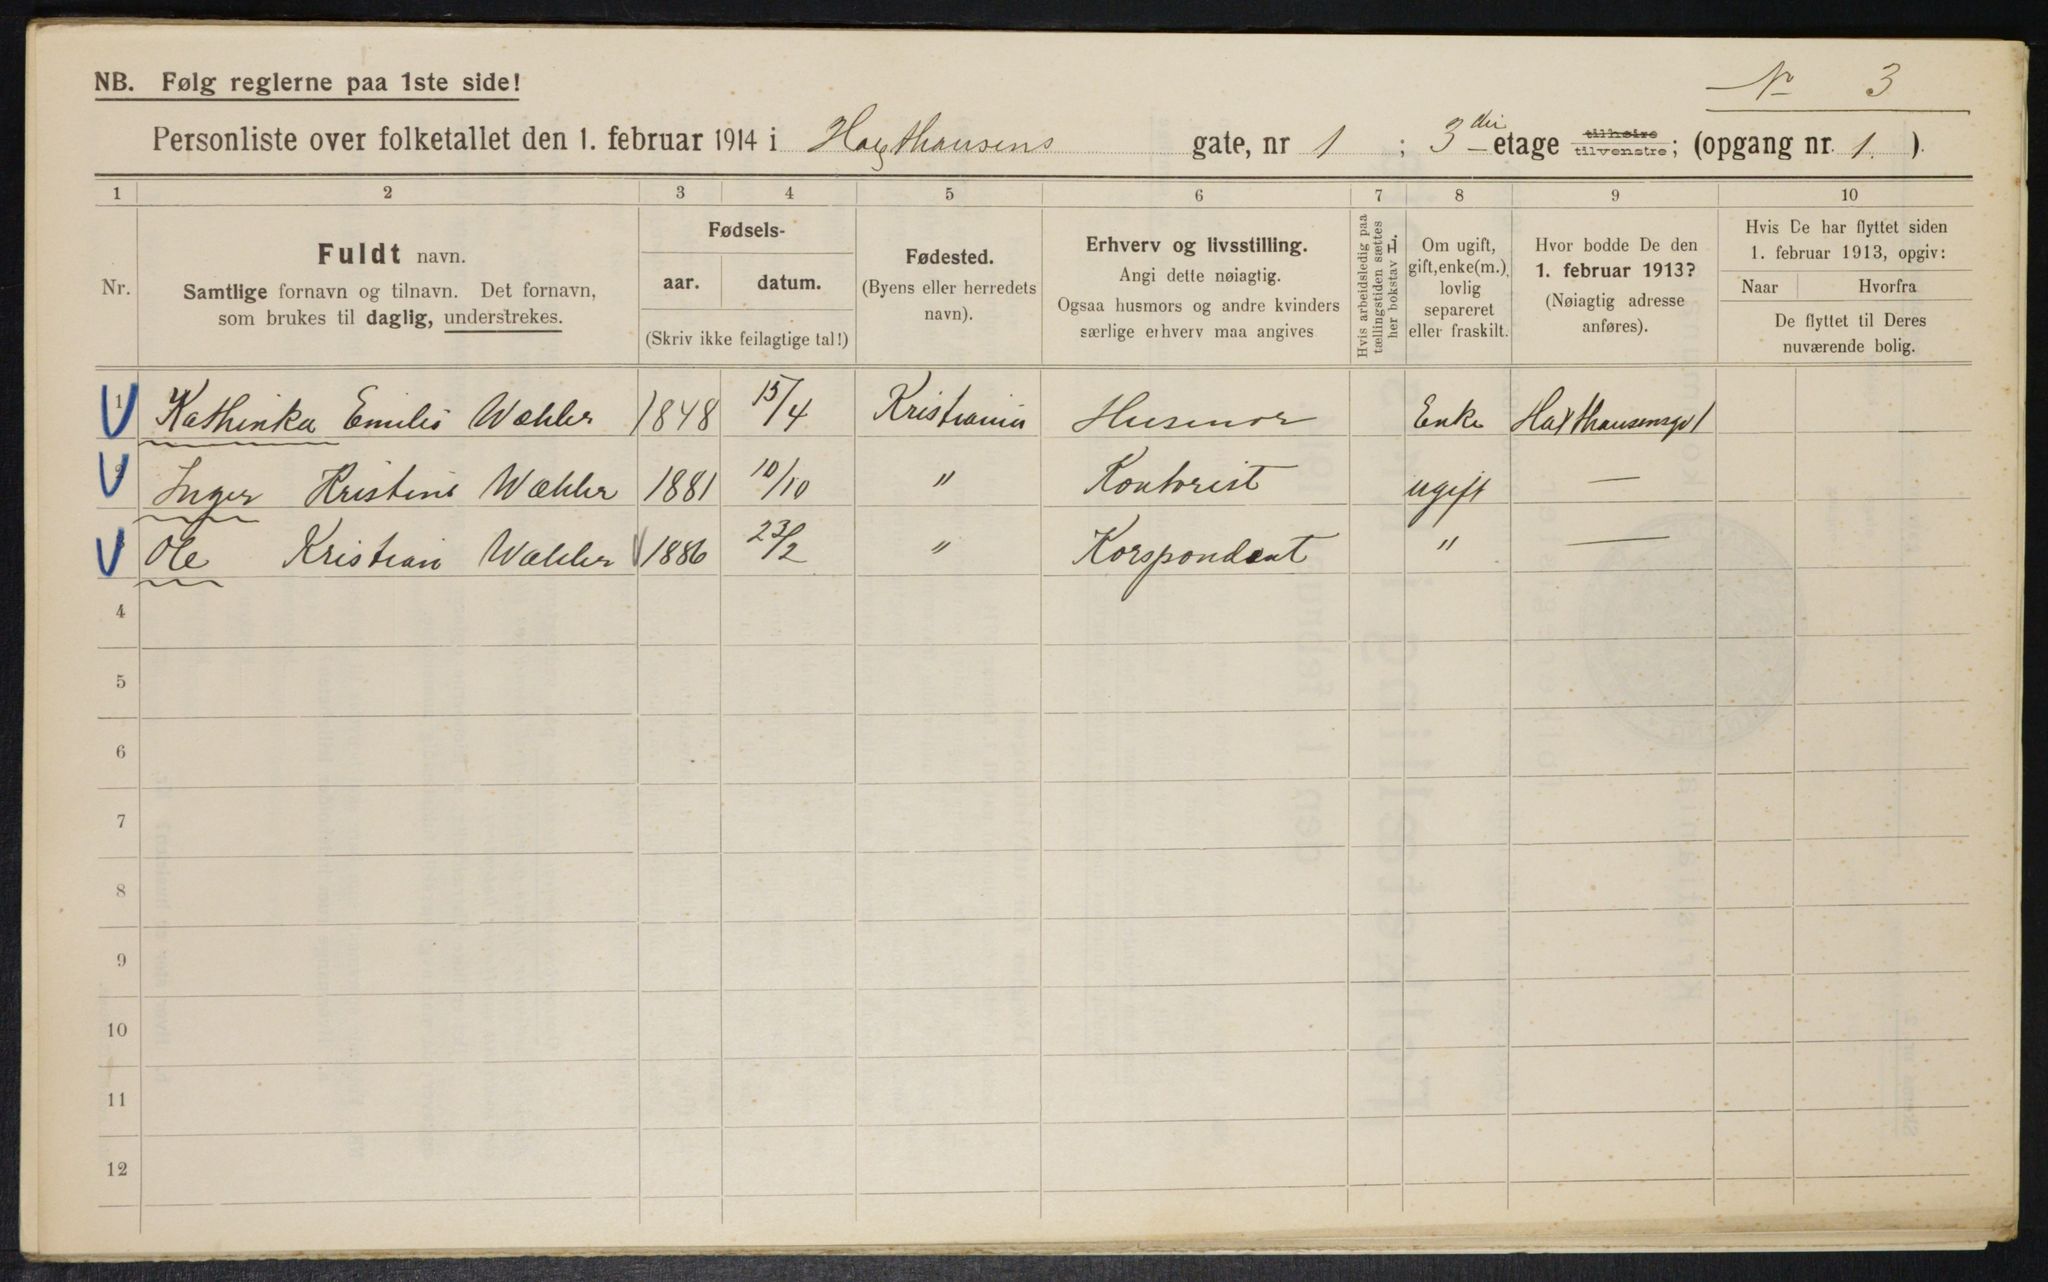 NB. Følg reglerne paa 1ste side!
No 3
Personliste over folketallet den 1. februar 1914 i Haxthausens gate, nr 1 ; 3die etage tilhøire tilvenstre; (opgang nr. 1. ).
1 2 3 4 5 6 7 8 9 10
Nr.
Fuldt navn.
Samtlige fornavn og tilnavn. Det fornavn,
som brukes til daglig, understrekes.
Fødsels-
aar. datum.
(Skriv ikke feilagtige tal!)
Fødested.
(Byens eller herredets
navn).
Erhverv og livsstilling.
Angi dette nøiagtig.
Ogsaa husmors og andre kvinders
særlige erhverv maa angives
Hvis arbeidsledig paa
tællingstiden sættes
her bokstav L.
Om ugift,
gift, enke(m.),
lovlig
separeret
eller fraskilt.
Hvor bodde De den
1. februar 1913?
(Nøiagtig adresse
anføres).
Hvis De har flyttet siden
1. februar 1913, opgiv:
Naar Hvorfra
De flyttet til Deres
nuværende bolig.
1 Kathinka Emilie Wæhler 1848 15/4 Kristiania Husmor Enke Haxthausensgt 1
2 Inger Kristine Wæhler 1881 10/10 " Kontorist ugift —
3 Ole Kristian Wæhler 1886 23/2 " Korspondent " —
4
5
6
7
8
9
10
11
12